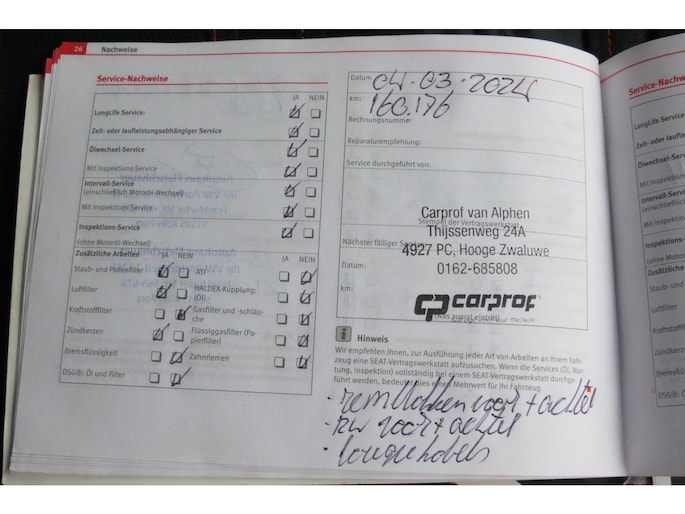 26 Nachweise
Service-Nachweise
JA NEIN
LongLife Service:
Zeit- oder laufleistungsabhängiger Service
Ölwechsel-Service
Mit Inspektions-Service
Intervall-Service
(einschließlich Motoröl-Wechsel)
Mit Inspektions-Service
Inspektions-Service
(ohne Motoröl-Wechsel)
Zusätzliche Arbeiten JA NEIN JA NEIN
Staub- und Pollenfilter ATF
Luftfilter HALDEX-Kupplung:
(Öl)
Kraftstofffilter Gasfilter und -schläu-
che
Zündkerzen Flüssiggasfilter (Pa-
pierfilter)
Bremsflüssigkeit Zahnriemen
DSG®: Öl und Filter
Datum 04-03-2024
km: 160.176
Rechnungsnummer:
Reparaturempfehlung:
Service durchgeführt von:
Carprof van Alphen
Stempel der Vertragswerkstatt
Thijssenweg 24A
Nächster fälliger
4927 PC, Hooge Zwaluwe
Datum:
0162-685808
km:
CP carprof
(was zuerst eintritt)
i Hinweis
Wir empfehlen Ihnen, zur Ausführung jeder Art von Arbeiten an Ihrem Fahr-
zeug eine SEAT-Vertragswerkstatt aufzusuchen. Wenn die Services (Öl, War-
tung, Inspektion) vollständig bei einem SEAT-Vertragswerkstatt durchge-
führt werden, bedeutet dies einen Mehrwert für Ihr Fahrzeug.
- remblokken voor + achter
- rw voor + achter
Service-Nachweise
LongLife Service:
Zeit- oder laufle
Ölwechsel-Service
Mit Inspektion
Intervall-Service
(einschließlich
Mit Inspektion
Inspektions-
(ohne Motoröl-
Zusätzliche
Staub- und
Luftfilter
Kraftstofffilter
Zündkerzen
Bremsflüssig
DSG®: Öl